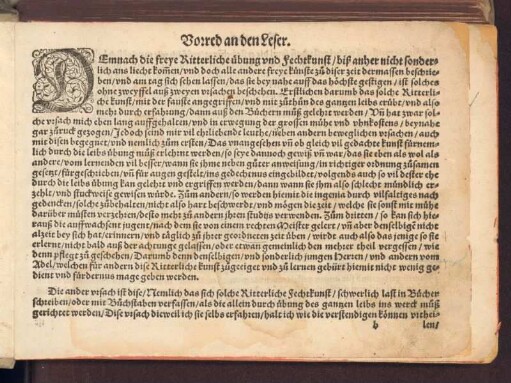 Vorred an den Leser.
DEmnach die freye Ritterliche übung vnd Fechtkunst / biß anher nicht sonder-
lich ans liecht kom̃en / vnd doch alle andere freye künste zů diser zeit dermassen beschrie-
ben / vnd am tag sich sehen lassen / das sie bey nahe auff das höchste gestigen / ist solches
ohne zweyffel auß zweyen vrsachen beschehen. Erstlichen darumb das solche Ritterli-
che kunst / mit der fauste angegriffen / vnd mit zůthůn des gantzen leibs erůbt / vnd also
mehr durch erfahrung / dann auß den Büchern můß gelehrt werden / Vn̄ hat zwar sol-
che vrsach mich eben lang auffgehalten / vnd in erwegung der grossen mühe vnd vnkostens / beynahe
gar zůruck gezogen / Jedoch seind mir vil ehrliebende leuthe / neben andern beweglichen vrsachen / auch
mit disen begegnet / vnd nemlich zům ersten / Das vnangesehen vn̄ ob gleich vil gedachte kunst fürnem-
lich durch die leibs übung můß erlehrnt werden / so seye dannoch gewiß vn̄ war / das sie eben als wol als
andere / vom lernenden vil besser / wann sie ihme neben gůter anweisung / in richtiger ordnung zůsamen
gesetzt / fürgeschrieben / vn̄ für augen gestelt / ins gedechtnus eingebildet / volgends auch so vil dester ehe
durch die leibs übung kan gelehrt vnd ergriffen werden / dann wann sie ihm also schlecht mündlich er-
zehlt / vnd stuckweise gewisen würde. Zům andern / so werden hiemit die ingenia durch vilfaltiges nach
gedencken / solche zůbehalten / nicht also hart beschwerdt / vnd mögen die zeit / welche sie sonst mit mühe
darüber müsten verzehren / desto mehr zů andern jhren studijs verwenden. Zům dritten / so kan sich hie-
rauß die auffwachsent jugent / nach dem sie von einem rechten Meister gelert / vn̄ aber denselbigē nicht
alzeit bey sich hat / erinnern / vnd täglich zů jhrer geordneten zeit üben / würde auch also das jenige so sie
erlernt / nicht bald auß der achtunge gelassen / oder etwan gemeinlich den mehrer theil vergessen / wie
denn pflegt zů geschehen / Darumb denn denselbigen / vnd sonderlich jungen Herren / vnd andern vom
Adel / welchen für andern dise Ritterliche kunst zůgeeiget vnd zů lernen gebürt hiemit nicht wenig ge-
dient vnd fürdernus mage geben werden.
Die ander vrsach ist dise / Nemlich das sich solche Ritterliche Fechtkunst / schwerlich last in Bücher
schreiben / oder mit Bůchstaben verfassen / als die allein durch übung des gantzen leibs ins werck můß
gerichtet werden / Dise vrsach dieweil ich sie selbs erfahren / halt ich wie die verstendigen können vrthei-
b len /